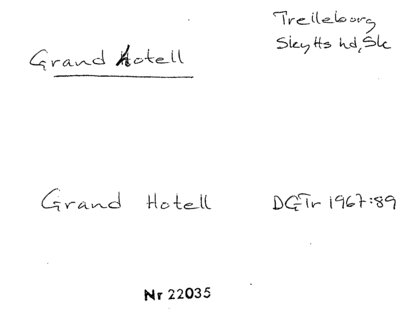 Trelleborg
Grand Hotell
Skytts hd, Sk
Grand Hotell DGTr 1967:89
Nr 22035